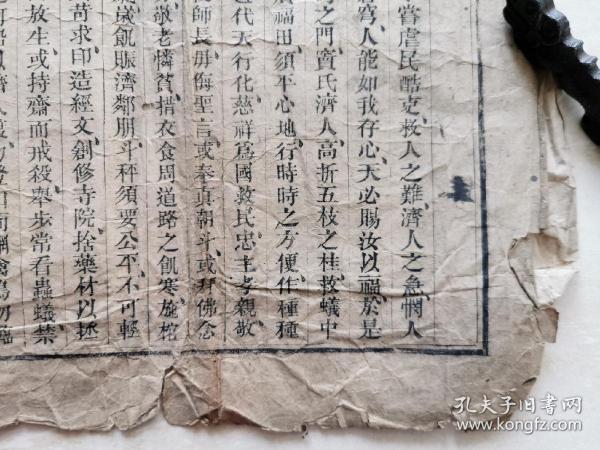 嘗虐民酷吏、救人之難、濟人之急、憫人
窩、人能如我存心、天必賜汝以福、於是
之門、竇氏濟人、高折五枝之桂、救蟻中
福田、須平心地、行時時之方便、作種種
代天行化、慈祥爲國救民、忠主孝親、敬
師長、毋侮聖言、或奉眞朝斗、或拜佛念
敬老憐貧、措衣食周道路之飢寒、施棺
歲飢賑濟鄰朋、斗秤須要公平、不可輕
苛求、印造經文、創修寺院、捨藥材以拯
放生、或持齋而戒殺、舉步常看蟲蟻、禁
孔夫子旧书网
www.kongfz.com